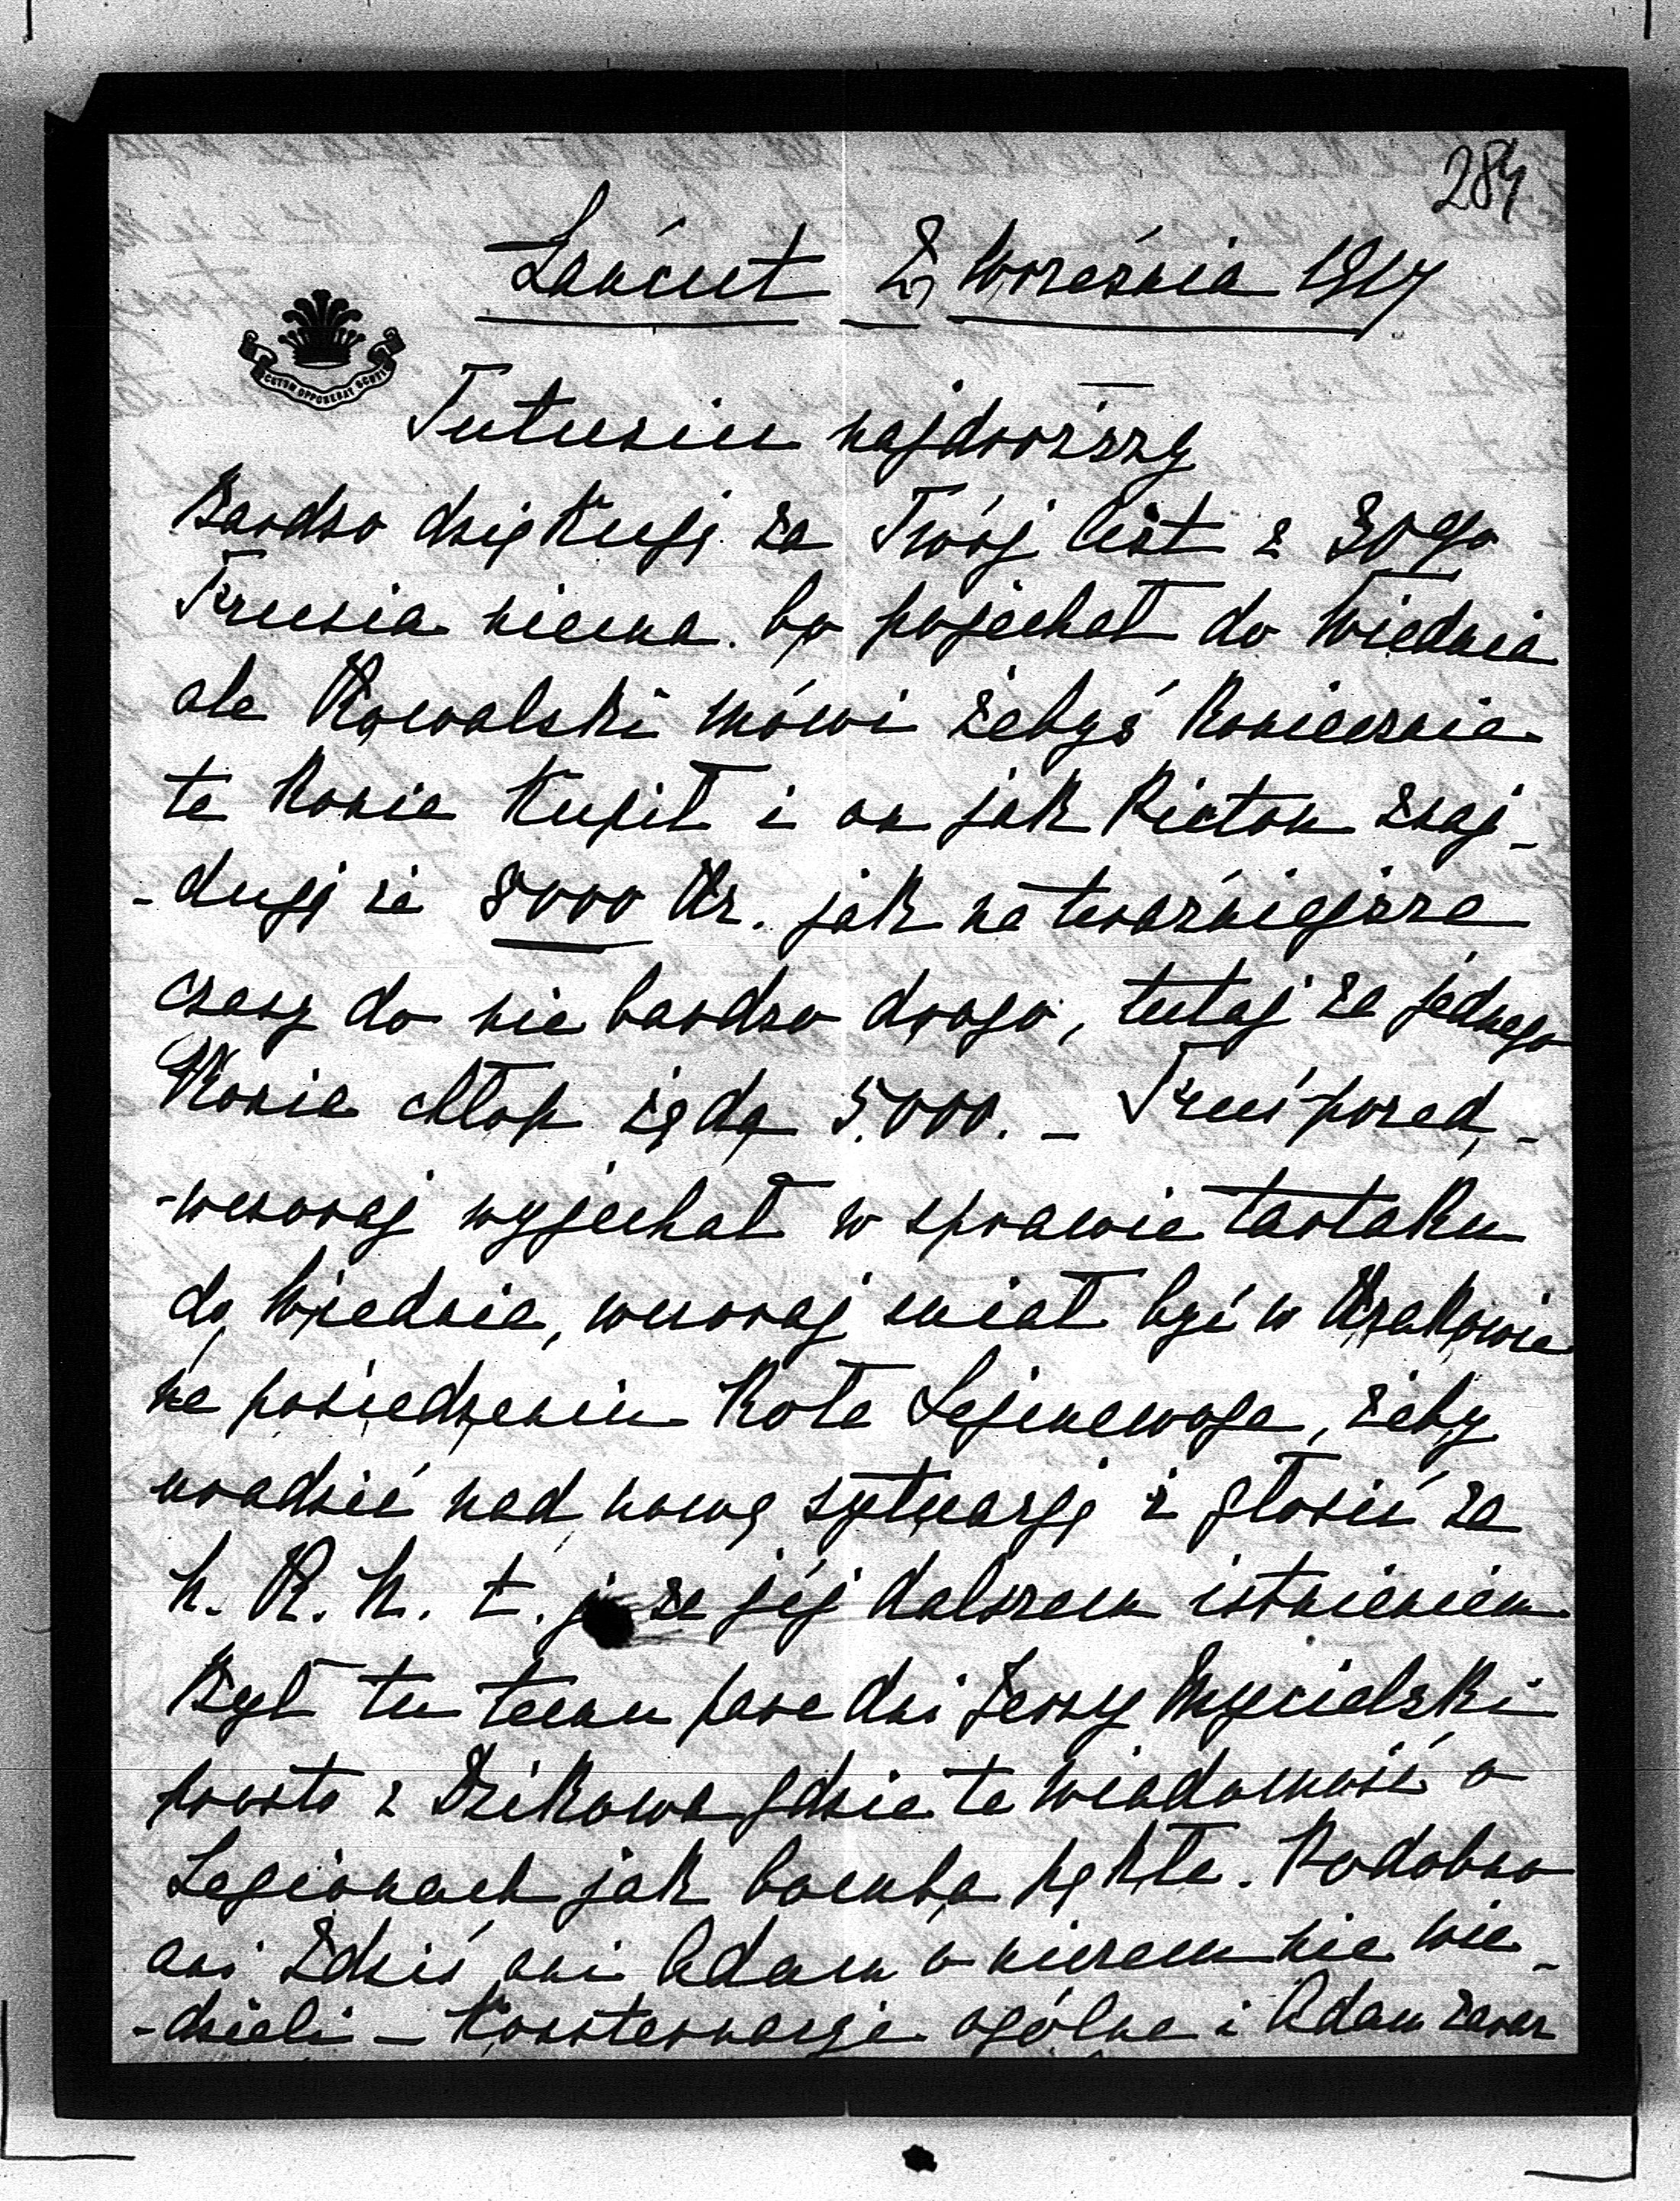 284
Łańcut 2 Września 1917
SCUTUM OPPONEBAT SCUTIS
Tutusiu najdroższy
Bardzo dziękuję za Twój list z 30go
Trusia niema. bo pojechał do Wiednia
ale Kowalski mówi żebyś koniecznie
te konie kupił i on jak Picton znaj-
-dują że 8000 Kr. jak na teraźniejsze
czasy to nie bardzo drogo, tutaj za jednego
Konia chłop żąda 5.000. – Truś przed-
-wczoraj wyjechał w sprawie tartaku
do Wiednia, wczoraj miał być w Krakowie
na posiedzeniu Koła Sejmowego, żeby
uradzić nad nową sytuacją i głosić za
N. K. N. t. j. za jej dalszem istnieniem
Był tu temu parę dni Jerzy Mycielski
prosto z Dzikowa gdzie ta wiadomość o
Legionach jak bomba pękła. Podobno
ani Zdziś ani Adam o niczem nie wie-
-dzieli – Konsternacja ogólna i Adam zaraz